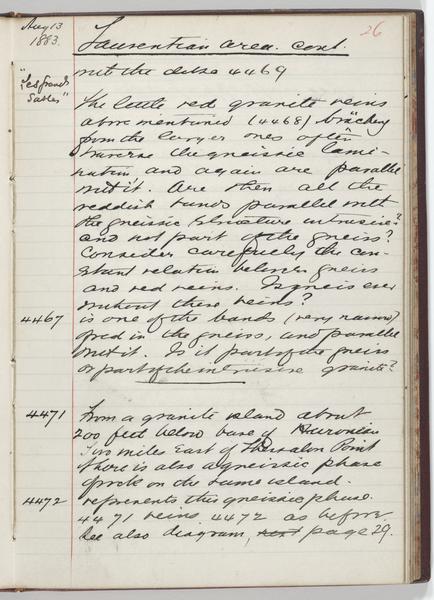 Aug 13
1883.
26
Laurentian area. cont.
"Les Grands
Sables"
with the dikes 4469
The little red granite veins
above mentioned (4468) branching
from the larger ones often
traverse the gneissic lami-
nation and again are parallel
with it. Are then all the
reddish bands parallel with
the gneissic structure intrusive?
and not part of the gneiss?
Consider carefully the con-
stant relation between gneiss
and red veins. Is gneiss ever
without these veins?
4467 is one of the bands (very narrow)
of red in the gneiss, and parallel
with it. Is it part of the gneiss
or part of the intrusive granite?
4471 From a granite island about
200 feet below base of Huronian
Two miles East of Thessalon Point
There is also a gneissic phase
of rock on the same island.
4472 represents this gneissic phase.
4471 veins 4472 as before.
See also diagram, next page 29.